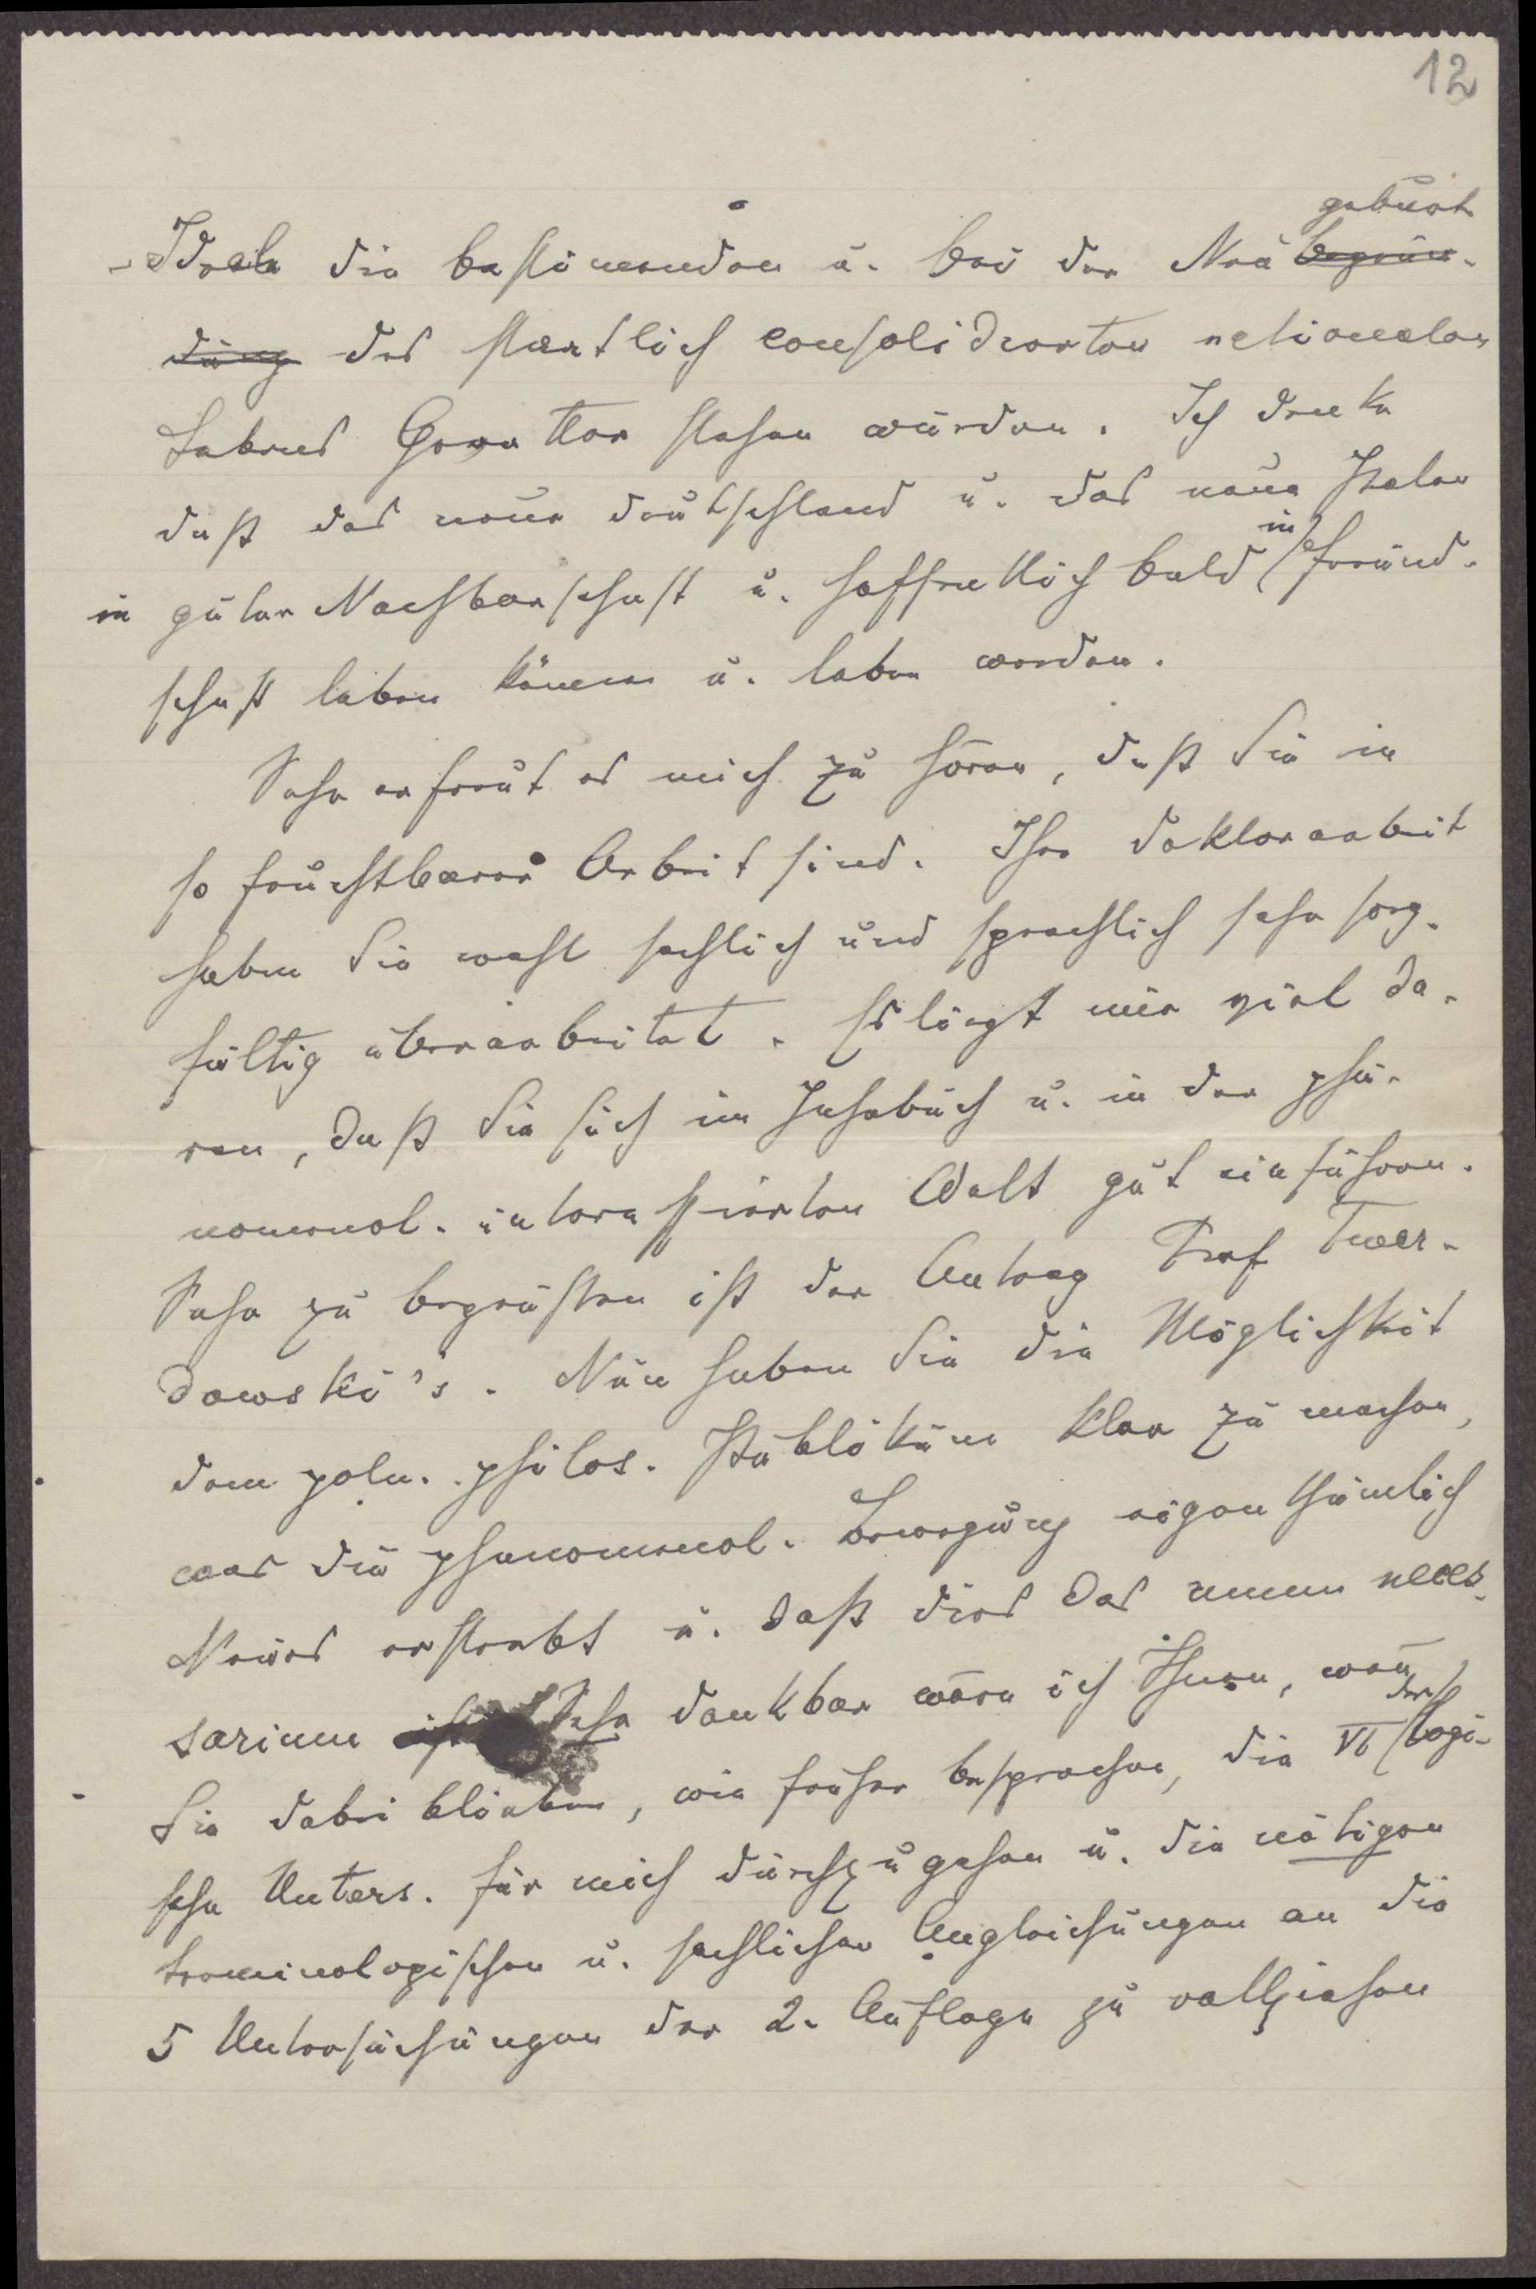 12
-Ideale die bestimmenden u. bei der Neugeburt ~~begrün-~~
~~dung~~ des staatlich consolidierten nationalen
Lebens Gevatter stehen würden. Ich denke
daß das neue Deutschland u. das neue Polen
in guter Nachbarschaft u. hoffentlich bald in Freund-
schaft leben können u. leben werden.
Sehr erfreut es mich zu hören, daß Sie in
so fruchtbarer Arbeit sind. Ihre Doktorarbeit
haben Sie wohl sachlich und sprachlich sehr sorg-
fältig überarbeitet. Es liegt mir viel da-
ran, daß Sie sich im Jahrbuch u. in der phä-
nomenol. interessierten Welt gut einführen.
Sehr zu begrüßen ist der Antrag Prof Twar-
dowski's. Nun haben Sie die Möglichkeit
dem poln. philos. Publikum klar zu machen,
was die phänomenol. Bewegung eigentümlich
Neues erstrebt u. daß dies das unum neces-
sarium ~~ist~~ Sehr dankbar wäre ich Ihnen, wenn
Sie dabei blieben, wie früher besprochen, die VI der logi-
schen Unters. für mich durchzugehen u. die nötigen
terminologischen u. sachlichen Angleichungen an die
5 Untersuchungen der 2. Auflage zu vollziehen